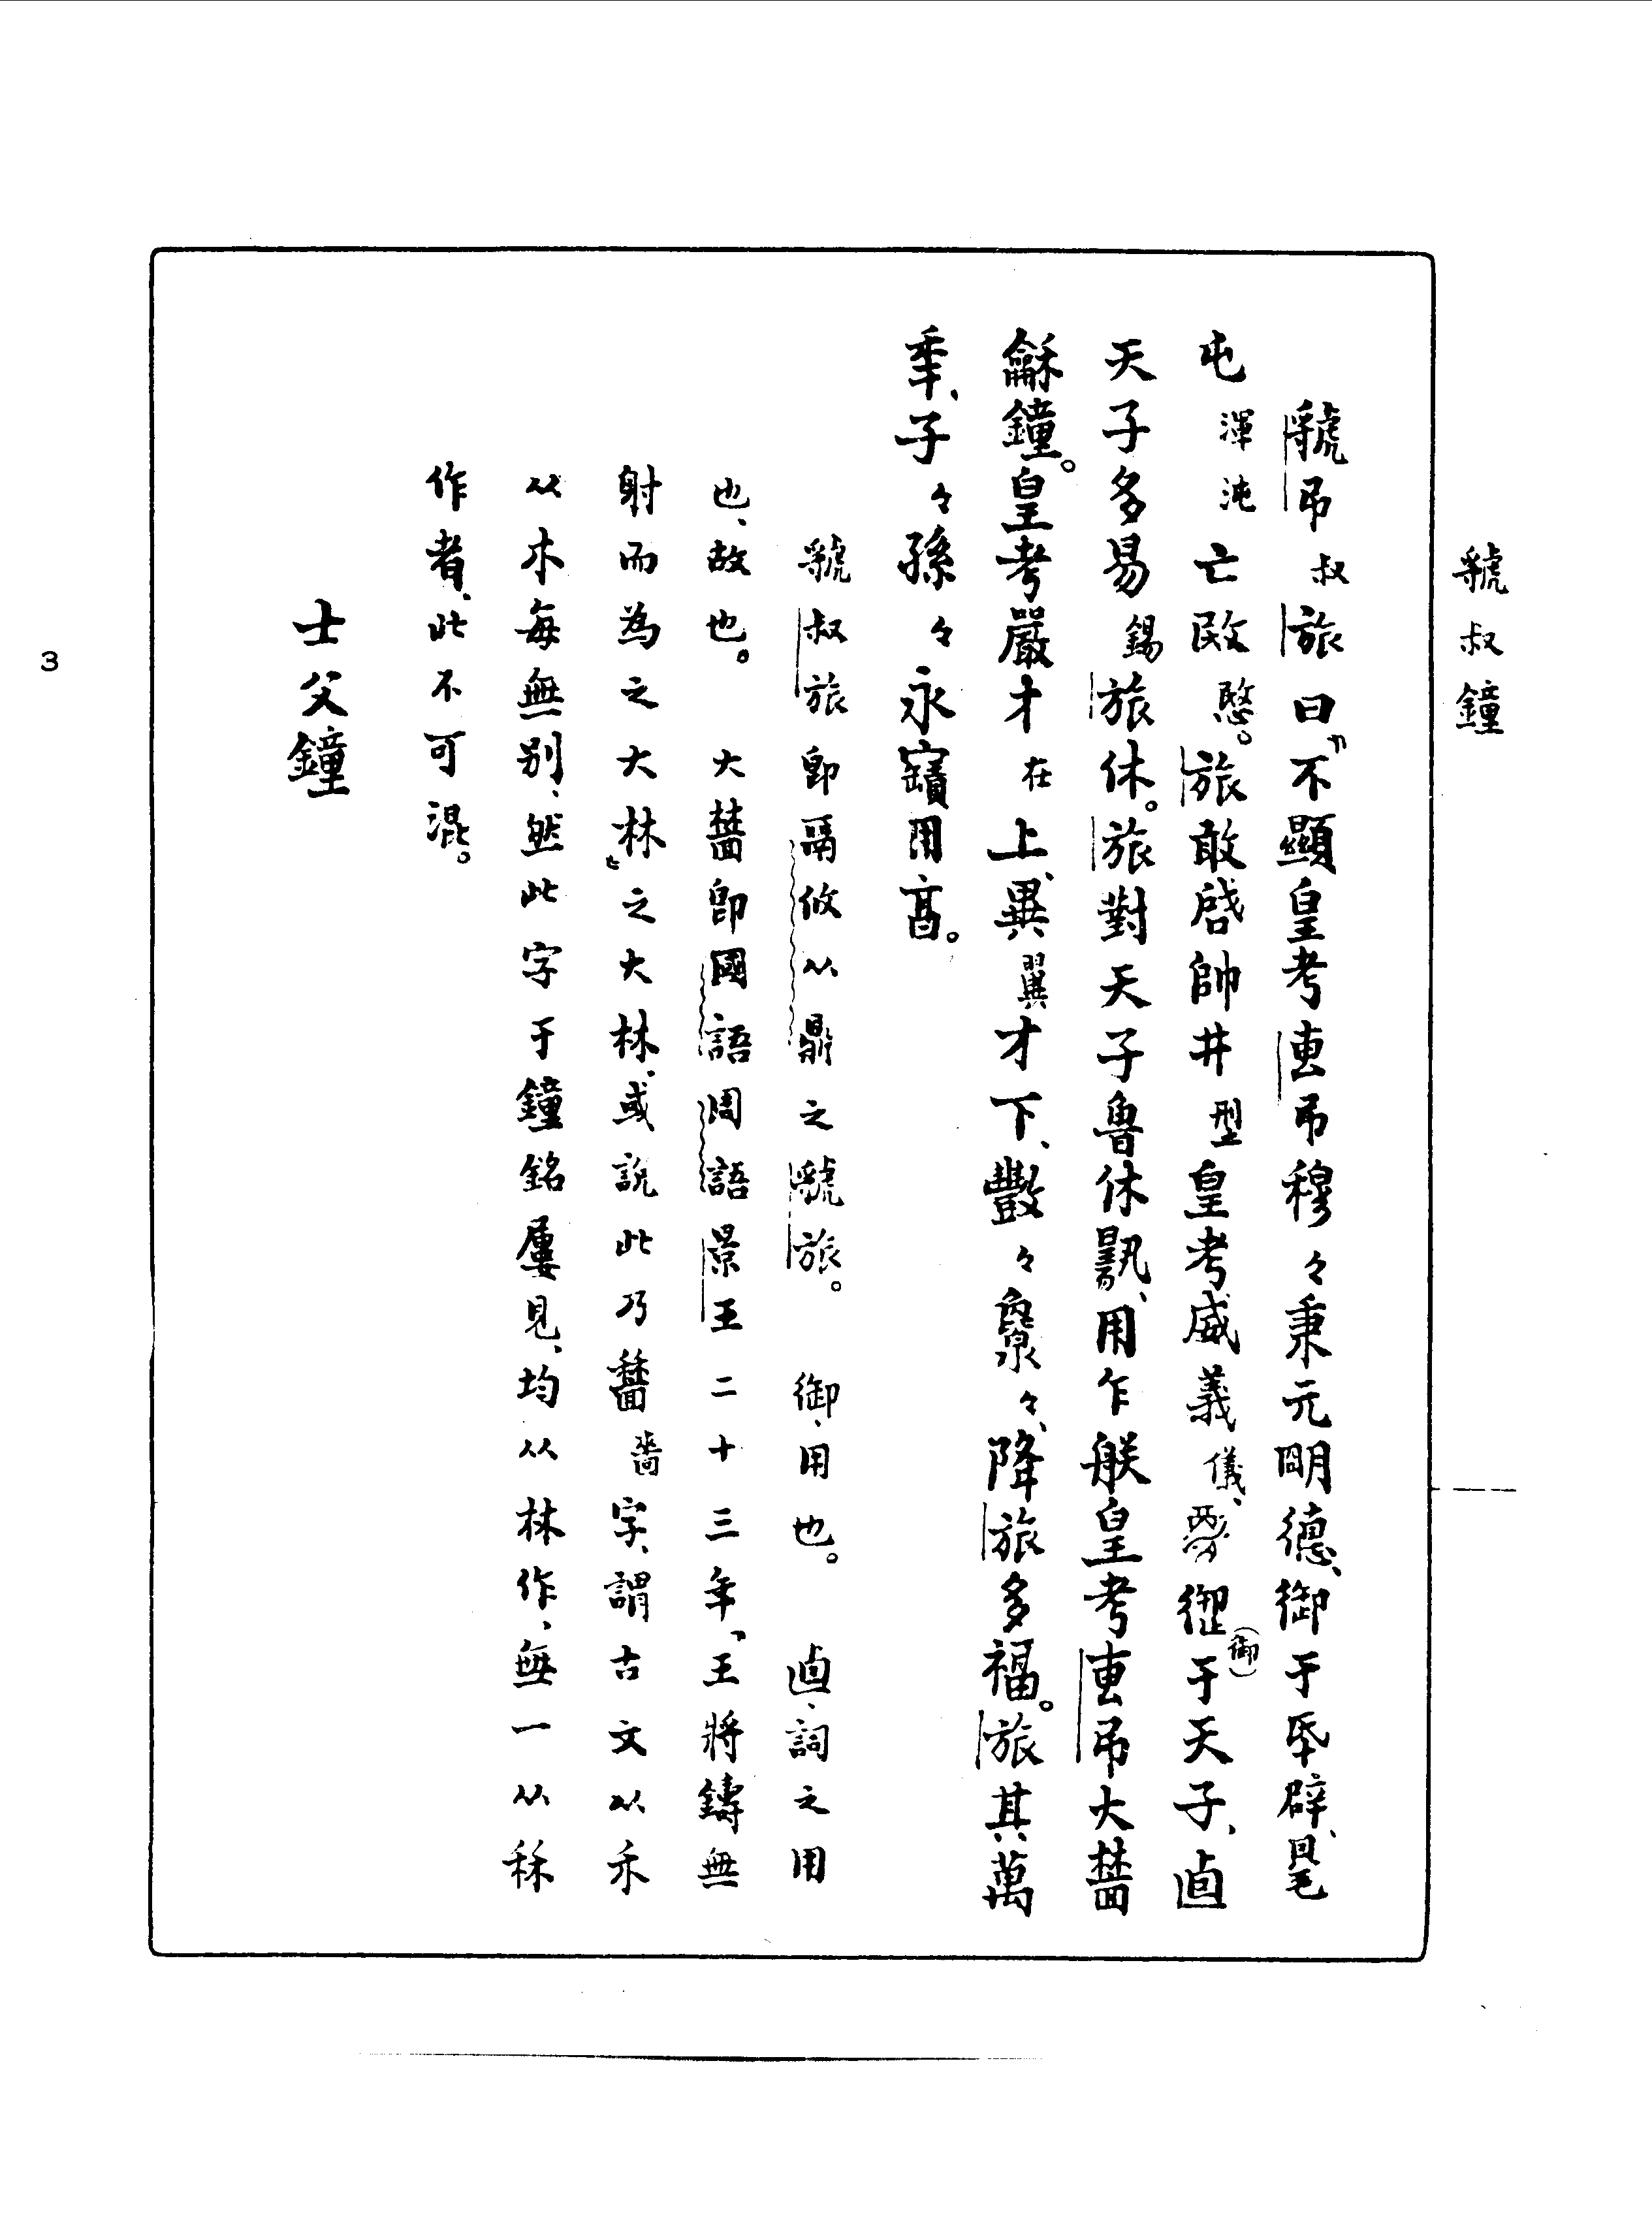 虢叔鐘
虢弔叔旅曰「不顯皇考叀弔穆々秉元朙德、御于氒辟、
屯渾沌亡敃愍。旅敢啓帥井型皇考威義儀、御(御)于天子、逌
天子多易錫旅休。旅對天子魯休、用乍朕皇考叀弔大薔
龢鐘。皇考嚴才在上、異翼才下、數々㲋々、降旅多福。旅其萬
秊、子々孫々永寶用亯。
虢叔旅卽鬲攸从鼎之虢旅。 御、用也。 逌、詞之用
也、故也。 大薔卽國語周語景王二十三年、「王將鑄無
射而為之大林」之大林、或說此乃薔嗇字、謂古文从禾
从木每無別、然此字于鐘銘屢見、均从林作、無一从秝
作者、此不可混。
士父鐘
3